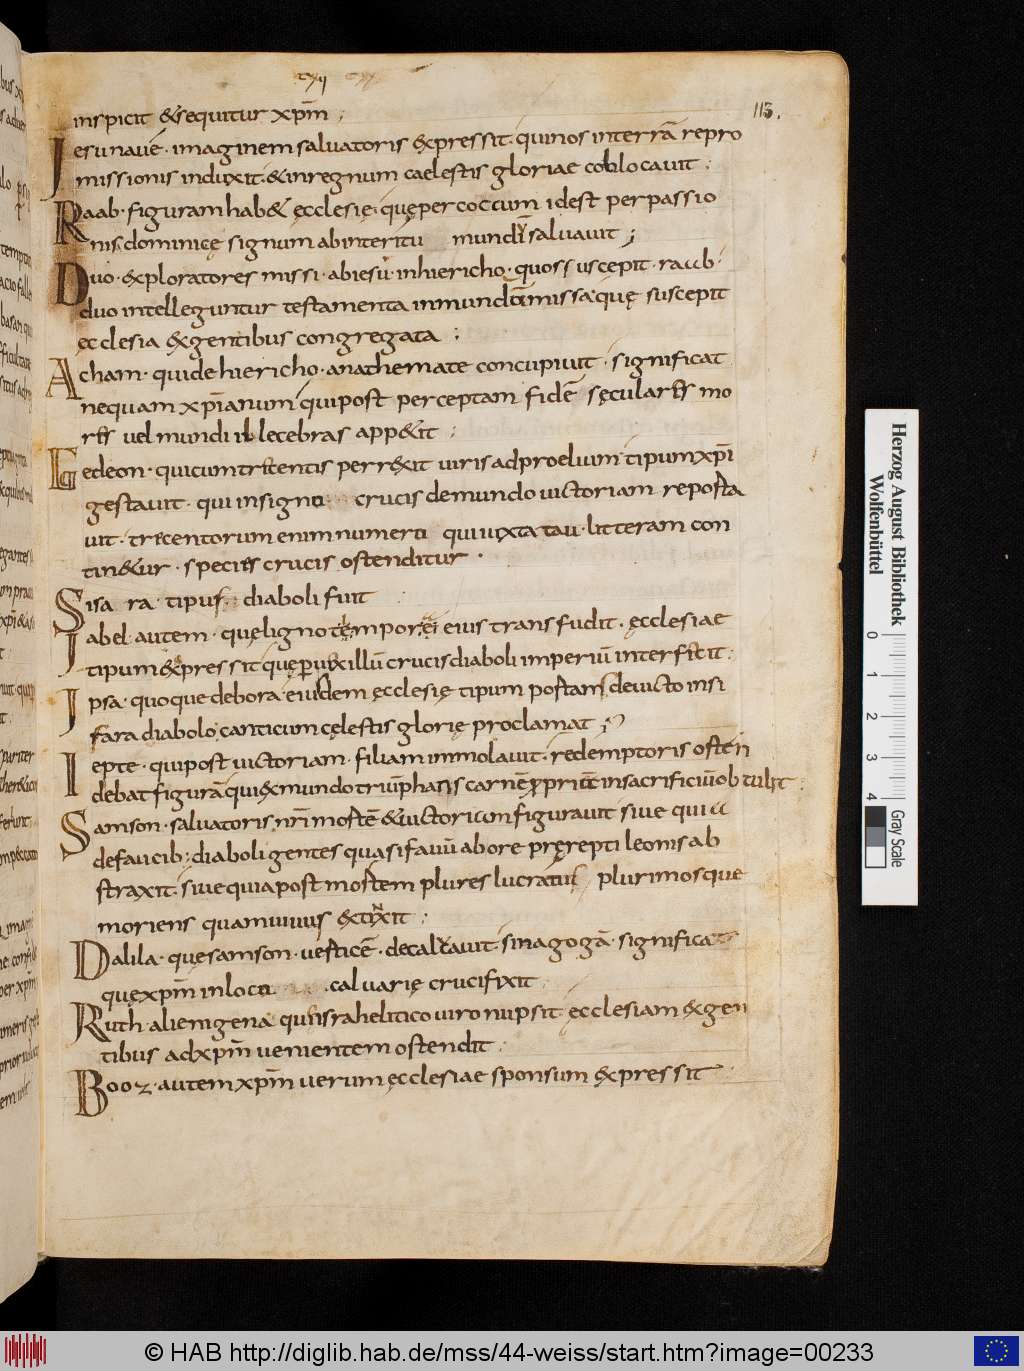 cxii
113.
inspicit &sequitur xp̄m ;
Iesu naue · imaginem saluatoris &xpressit · qui nos in terrā repro
missionis induxit · & in regnum caelestis gloriae collocauit ;
Raab · figuram hab& ęcclesię · quę per coccum idest per passio
nis dominicę signum ab interitu mundi saluauit ;
Duo · &xploratores missi · ab iesu in hiericho · quos suscepit · raab ·
duo intelleguntur testamenta in mundū missa quę suscepit
ęcclesia &x gentibus congregata ;
Acham · qui de hiericho · anathemate concupiuit · significat
nequam xp̄ianum qui post perceptam fidē sęculares mo
res uel mundi illecebras app&it ;
Gedeon · qui cum trecentis perr&xit uiris ad proelium tipum xp̄i
gestauit · qui in signo crucis de mundo uictoriam reporta
uit · trecentorum enim numero qui iuxta tau · litteram con
tin&ur · species crucis ostenditur ·
Sisa ra · tipus diaboli fuit
Iabel autem · quę ligno tempore eius transfudit · ęcclesiae
tipum &xpressit quę per uexillū crucis diaboli imperiū interfecit ;
Ipsa · quoque debora eiusdem ęcclesię tipum portans deuicto insi
fara diabolo canticum cęlestis glorię proclamat ;
Iepte · qui post uictoriam · filiam immolauit · redemptoris osten
debat figurā qui &x mundo triūphans carnē propriā in sacrificiū obtulit ;
Samson · saluatoris nr̄i mortē & uictoriam figurauit siue quia
de faucib; diaboli gentes quasi fauū ab ore pręrepti leonis ab
straxit · siue quia post mortem plures lucratus plurimosque
moriens quam uiuus &xtinxit ;
Dalila · quę samson · uerticē · decaluauit · sinagogā · significat
quę xp̄m in loco caluarię crucifixit
Ruth alienigena qui israhelitico uiro nupsit ęcclesiam &x gen
tibus ad xp̄m uenientem ostendit ·
Booz · autem xp̄m uerum ęcclesiae sponsum &xpressit
Herzog August Bibliothek
Wolfenbüttel
0 1 2 3 4
Gray Scale
© HAB http://diglib.hab.de/mss/44-weiss/start.htm?image=00233